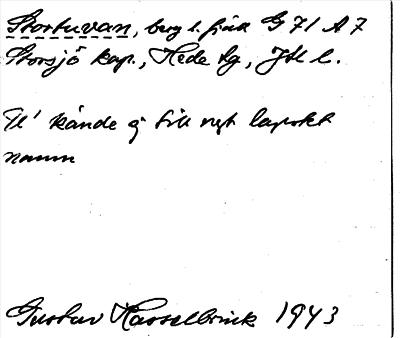 Stortuvan, berg l. fjäll G 71 A 7
Storsjö kap., Hede tg, Jtl l.
Tl' kände ej till ngt lapskt
namn
Gustav Hasselbrink 1943